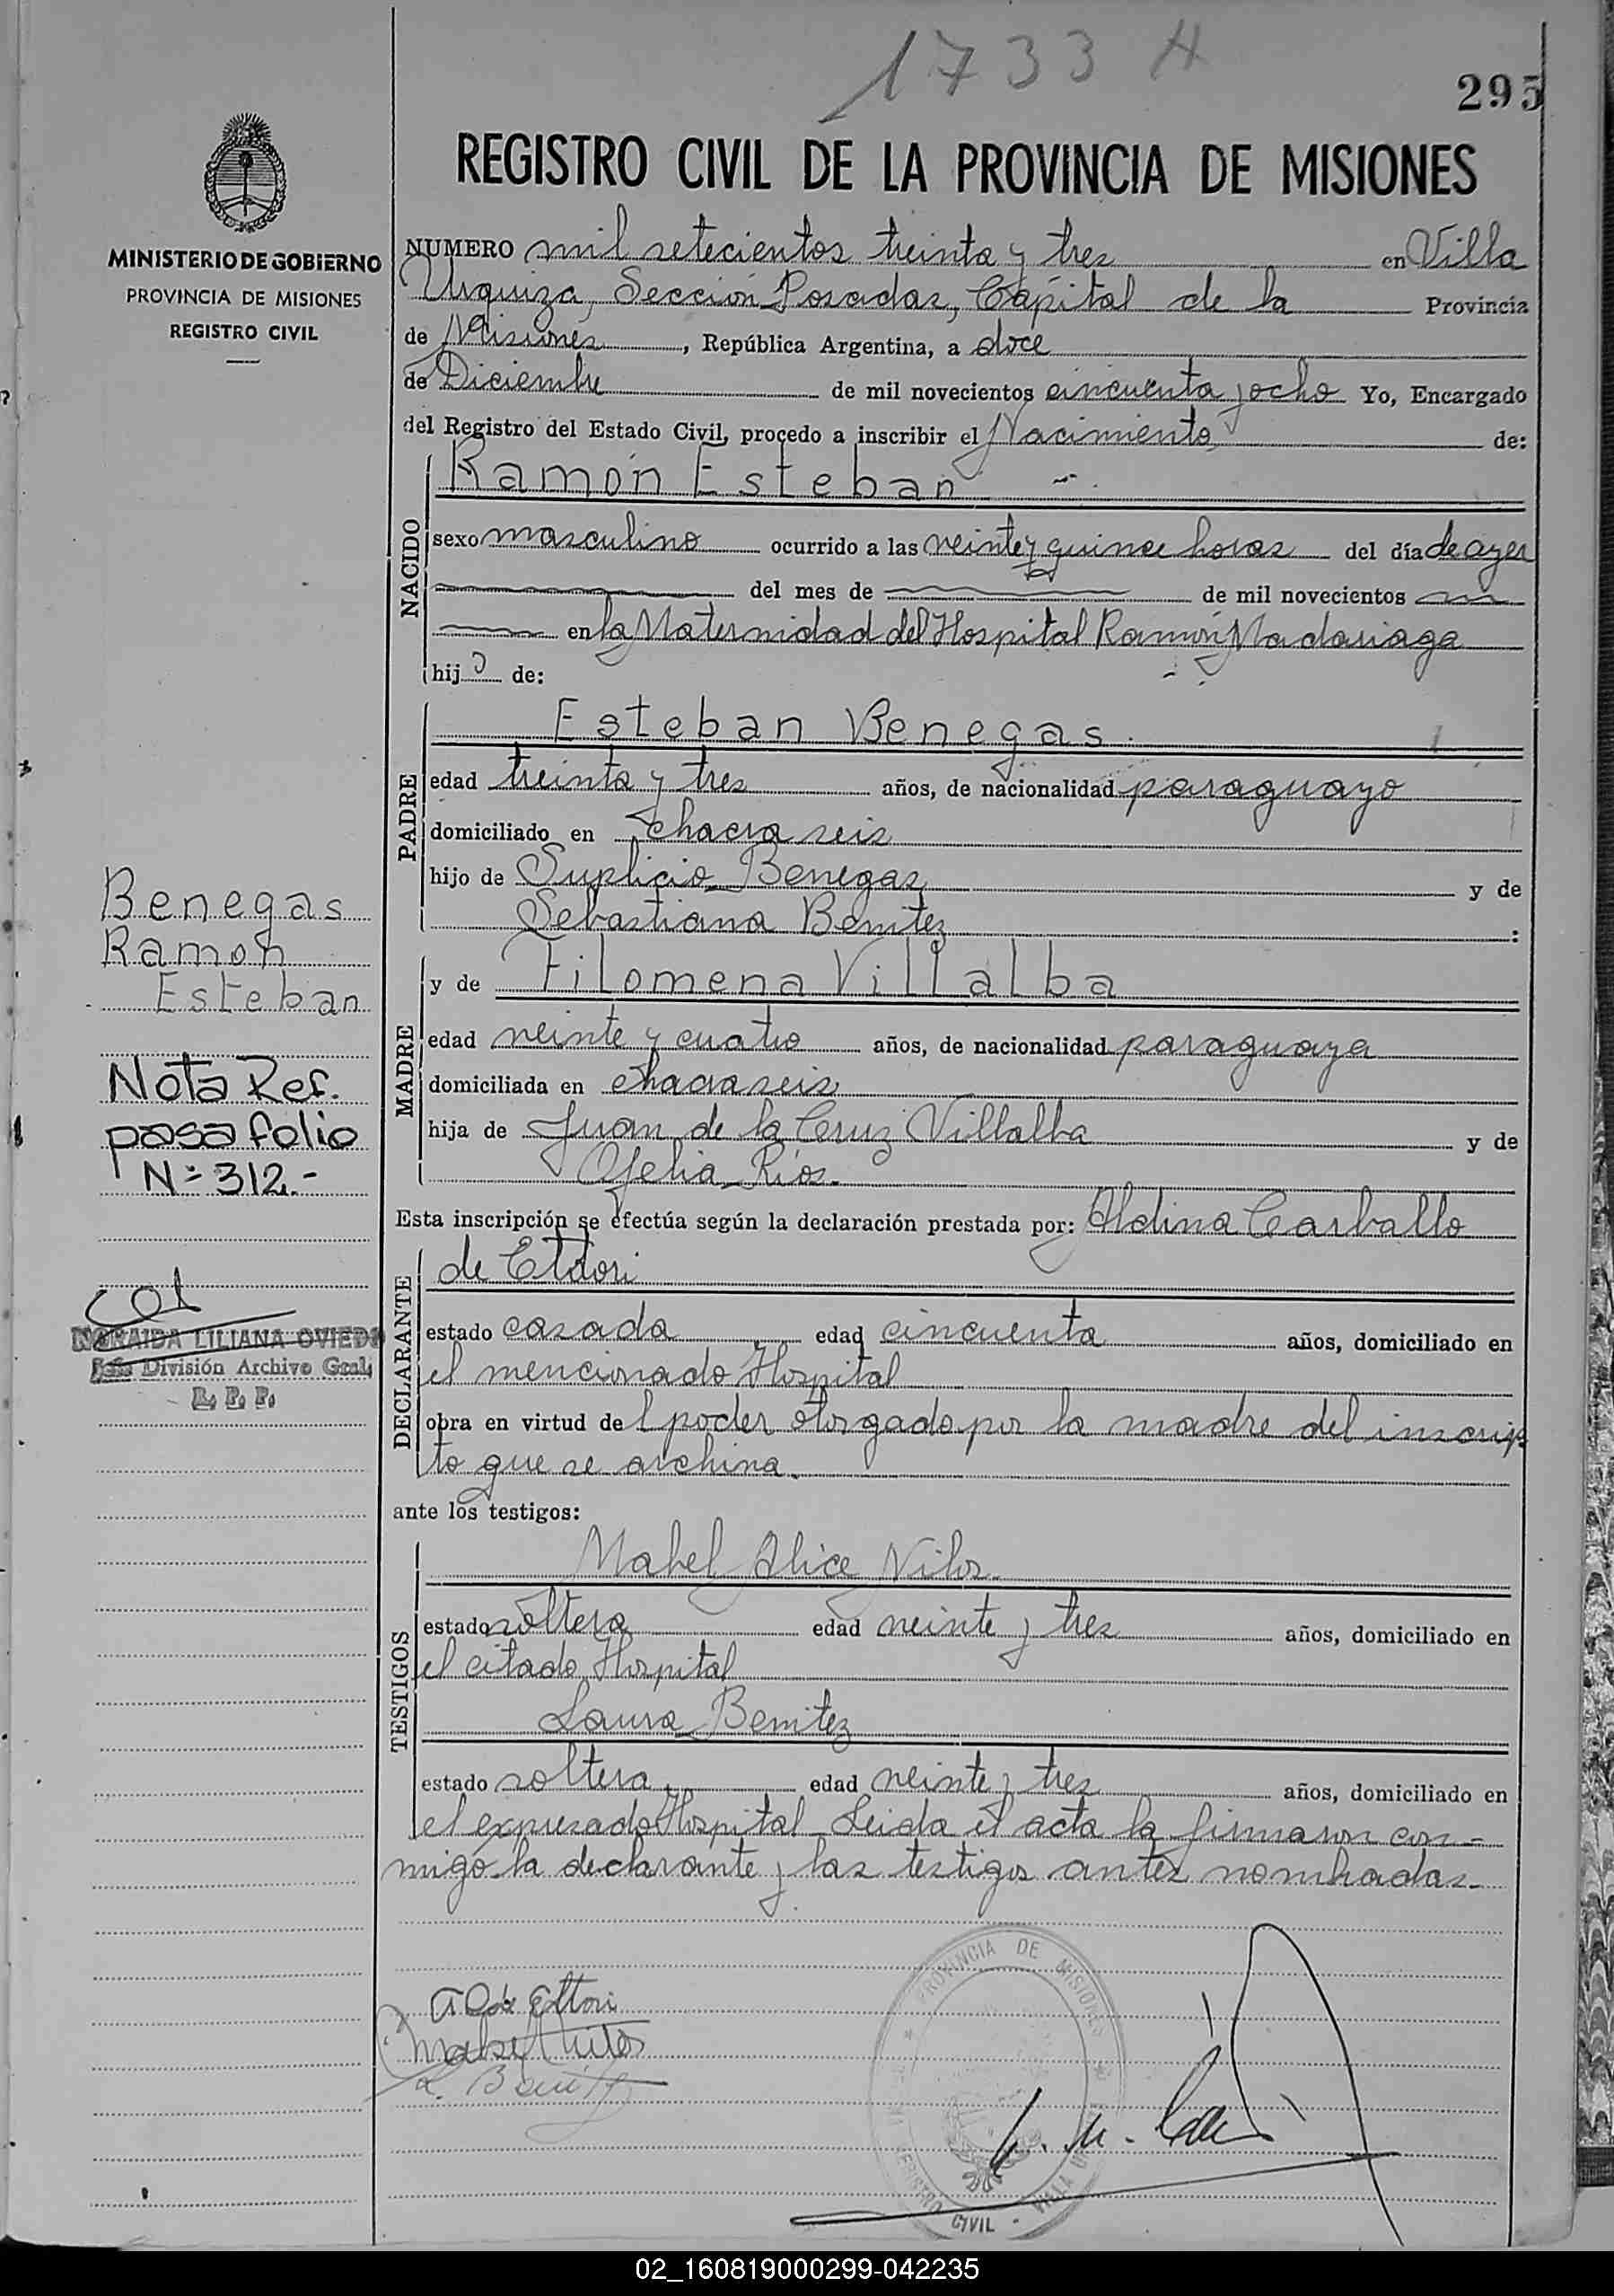 1733 H
295
REGISTRO CIVIL DE LA PROVINCIA DE MISIONES
MINISTERIO DE GOBIERNO
PROVINCIA DE MISIONES
REGISTRO CIVIL
NUMERO mil setecientos treinta y tres en Villa
Urquiza, Sección Posadas, Capital de la Provincia
de Misiones, República Argentina, a doce
de Diciembre de mil novecientos cincuenta y ocho Yo, Encargado
del Registro del Estado Civil, procedo a inscribir el Nacimiento de:
NACIDO
Ramón Esteban
sexo masculino ocurrido a las veinte y quince horas del día de ayer
del mes de de mil novecientos
en la Maternidad del Hospital Ramón Madariaga
hijo de:
PADRE
Esteban Benegas
edad treinta y tres años, de nacionalidad paraguayo
domiciliado en chacra seis
hijo de Suplicio Benegas y de
Sebastiana Benitez :
MADRE
y de Filomena Villalba
edad veinte y cuatro años, de nacionalidad paraguaya
domiciliada en chacra seis
hija de Juan de la Cruz Villalba y de
Ofelia Ríos.
Esta inscripción se efectúa según la declaración prestada por: Aldina Carballo
DECLARANTE
de Ettori
estado casada edad cincuenta años, domiciliado en
el mencionado Hospital
obra en virtud del poder otorgado por la madre del inscrip
to que se archiva.
ante los testigos:
TESTIGOS
Mabel Alice Nilos
estado soltera edad veinte y tres años, domiciliado en
el citado Hospital
Laura Benitez
estado soltera, edad veinte y tres años, domiciliado en
el expresado Hospital Leida el acta la firmaron con-
migo la declarante y las testigos antes nombradas.-
Benegas
Ramon
Esteban
Nota Ref.
pasa folio
Nº 312.-
NORAIDA LILIANA OVIEDO
Jefe División Archivo Gral.
R. P. P.
A C de Ettori
Mabel Nilos
L. Benitez
PROVINCIA DE MISIONES
REGISTRO CIVIL - VILLA URQUIZA
02_160819000299-042235